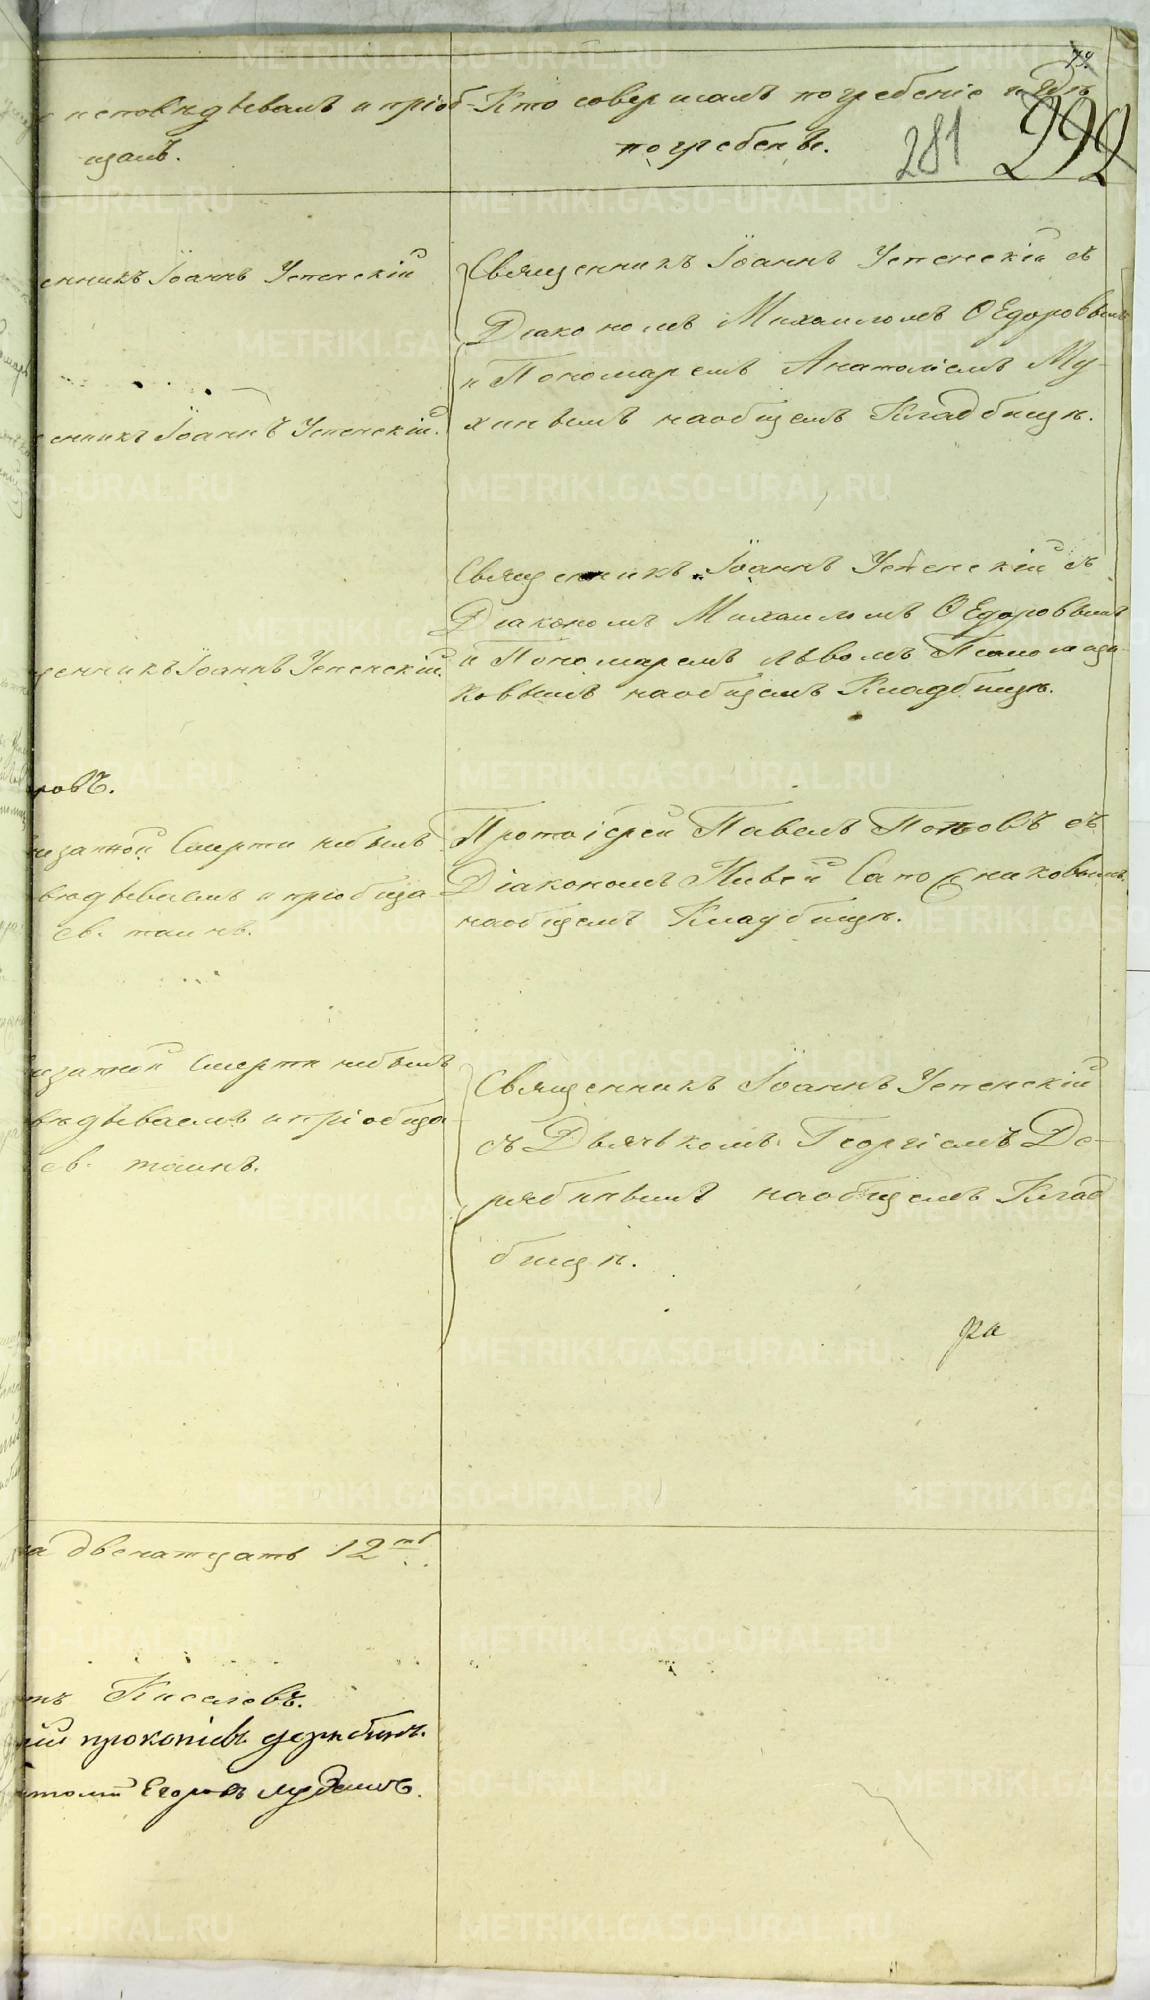 79.
исповѣдывалъ и пріоб-
щалъ.
Кто совершалъ погребеніе и гдѣ
погребенъ.
281
292
енникъ Іоаннъ Успенскій
Священникъ Іоаннъ Успенскій съ
Діакономъ Михаиломъ Ѳедоровымъ
и Пономаремъ Анатоліемъ Му-
хинымъ на общемъ Кладбищѣ.
енникъ Іоаннъ Успенскій.
Священникъ Іоаннъ Успенскій съ
Діакономъ Михаиломъ Ѳедоровымъ
и Пономаремъ Львомъ
ковымъ на общемъ Кладбищѣ.
щенникъ Іоаннъ Успенскій.
ровъ.
незапной Смерти небылъ
вѣдываемъ и пріобща
св. таинъ.
Протоіерей Павелъ Поповъ съ
Діакономъ Сапожниковымъ
на общемъ Кладбищѣ.
незапной Смерти небылъ
вѣдываемъ и пріобща
св. таинъ.
Священникъ Іоаннъ Успенскій
съ Дьячкомъ Георгіемъ Де-
рябинымъ на общемъ Клад
бищѣ.
ра
на двенатцать 12ть.
Киселевъ.
прокопіевъ дерябинъ.
Егоровъ
METRIKI.GASO-URAL.RU